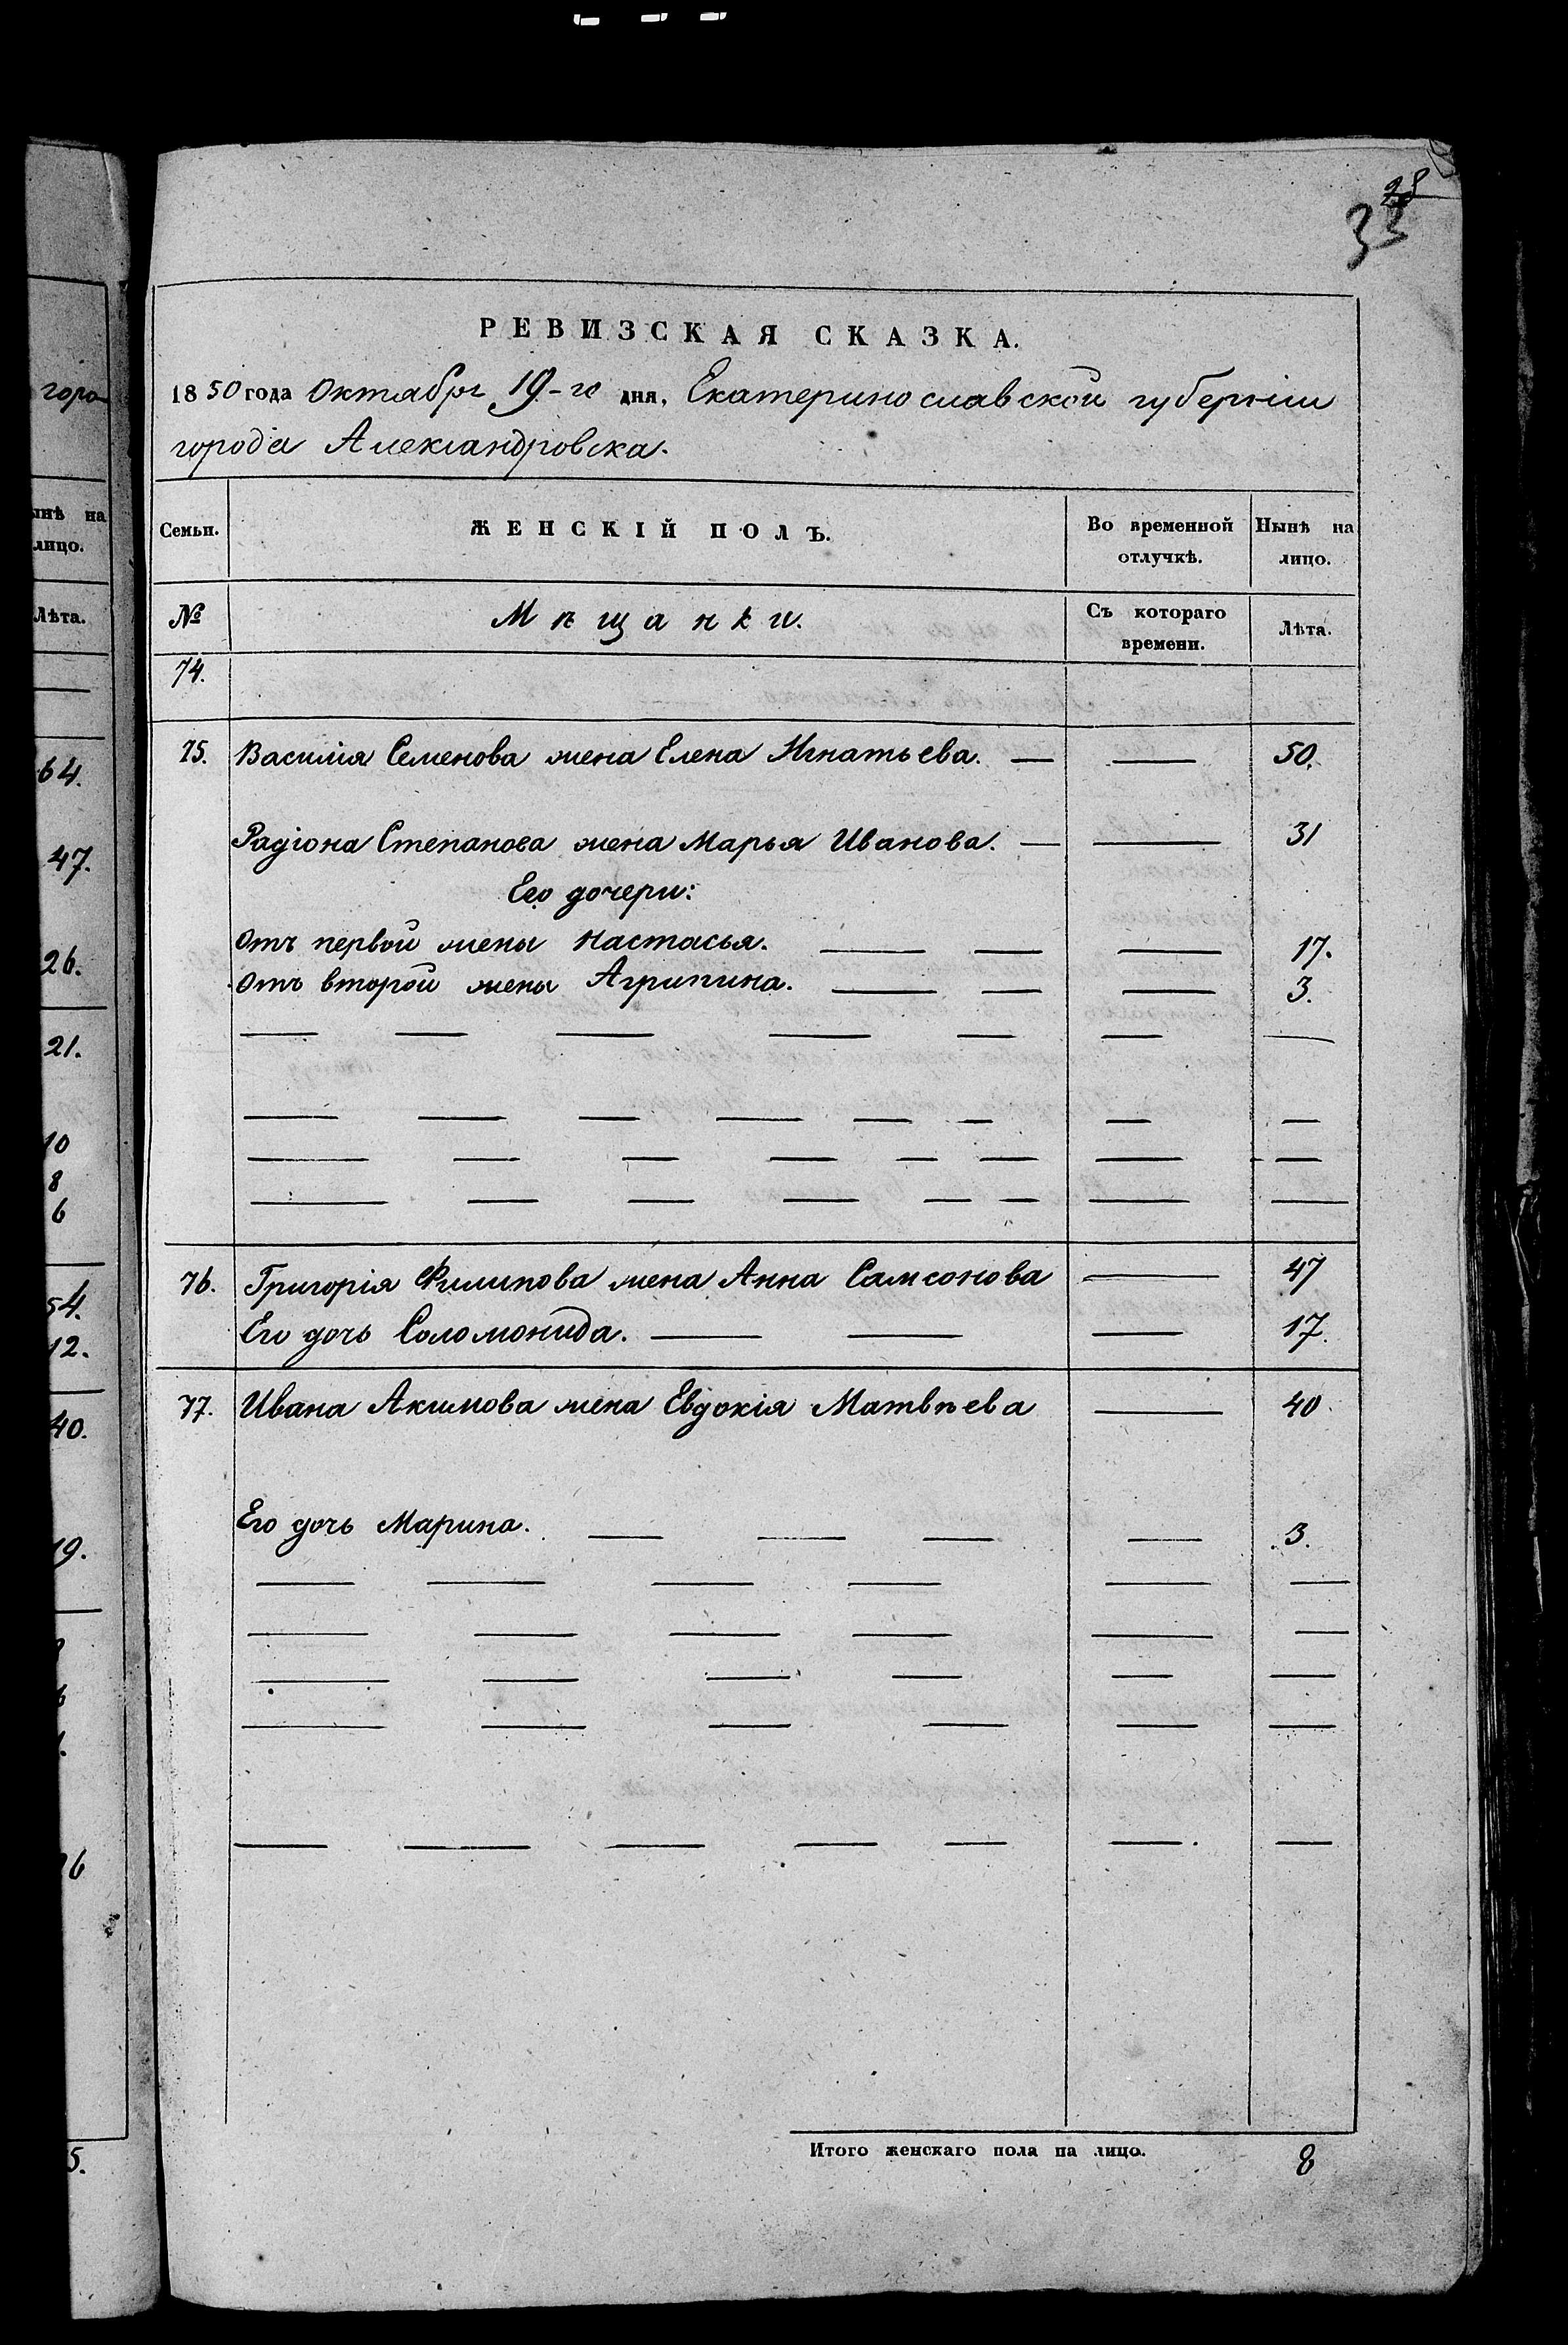 28
33
РЕВИЗСКАЯ СКАЗКА.
1850 года Октября 19-го дня, Екатеринославской губерніи
города Александровска.
Семьи. ЖЕНСКІЙ ПОЛЪ. Во временной отлучкѣ. Нынѣ на лицо.
№ Мѣщанки. Съ котораго времени. Лѣта.
74.
75. Василія Семенова жена Елена Игнатьева. — — 50.
Радіона Степанова жена Марья Иванова. — — 31
Его дочери:
Отъ первой жены Настасья. — — — 17.
Отъ второй жены Агрипина. — — — 3.
— — — — — — —
— — — — — — — —
— — — — — — — —
— — — — — — — —
76. Григорія Филипова жена Анна Самсонова — 47
Его дочь Соломонида. — — — 17.
77. Ивана Акимова жена Евдокія Матвѣева — 40
Его дочь Марина. — — — — 3.
— — — — — —
— — — — — —
— — — — — —
— — — — — —
— — — — — — —
Итого женскаго пола на лицо. 8
гора
нынѣ на
лицо.
Лѣта.
64.
47.
26.
21.
10
8
6
54.
12.
40.
19.